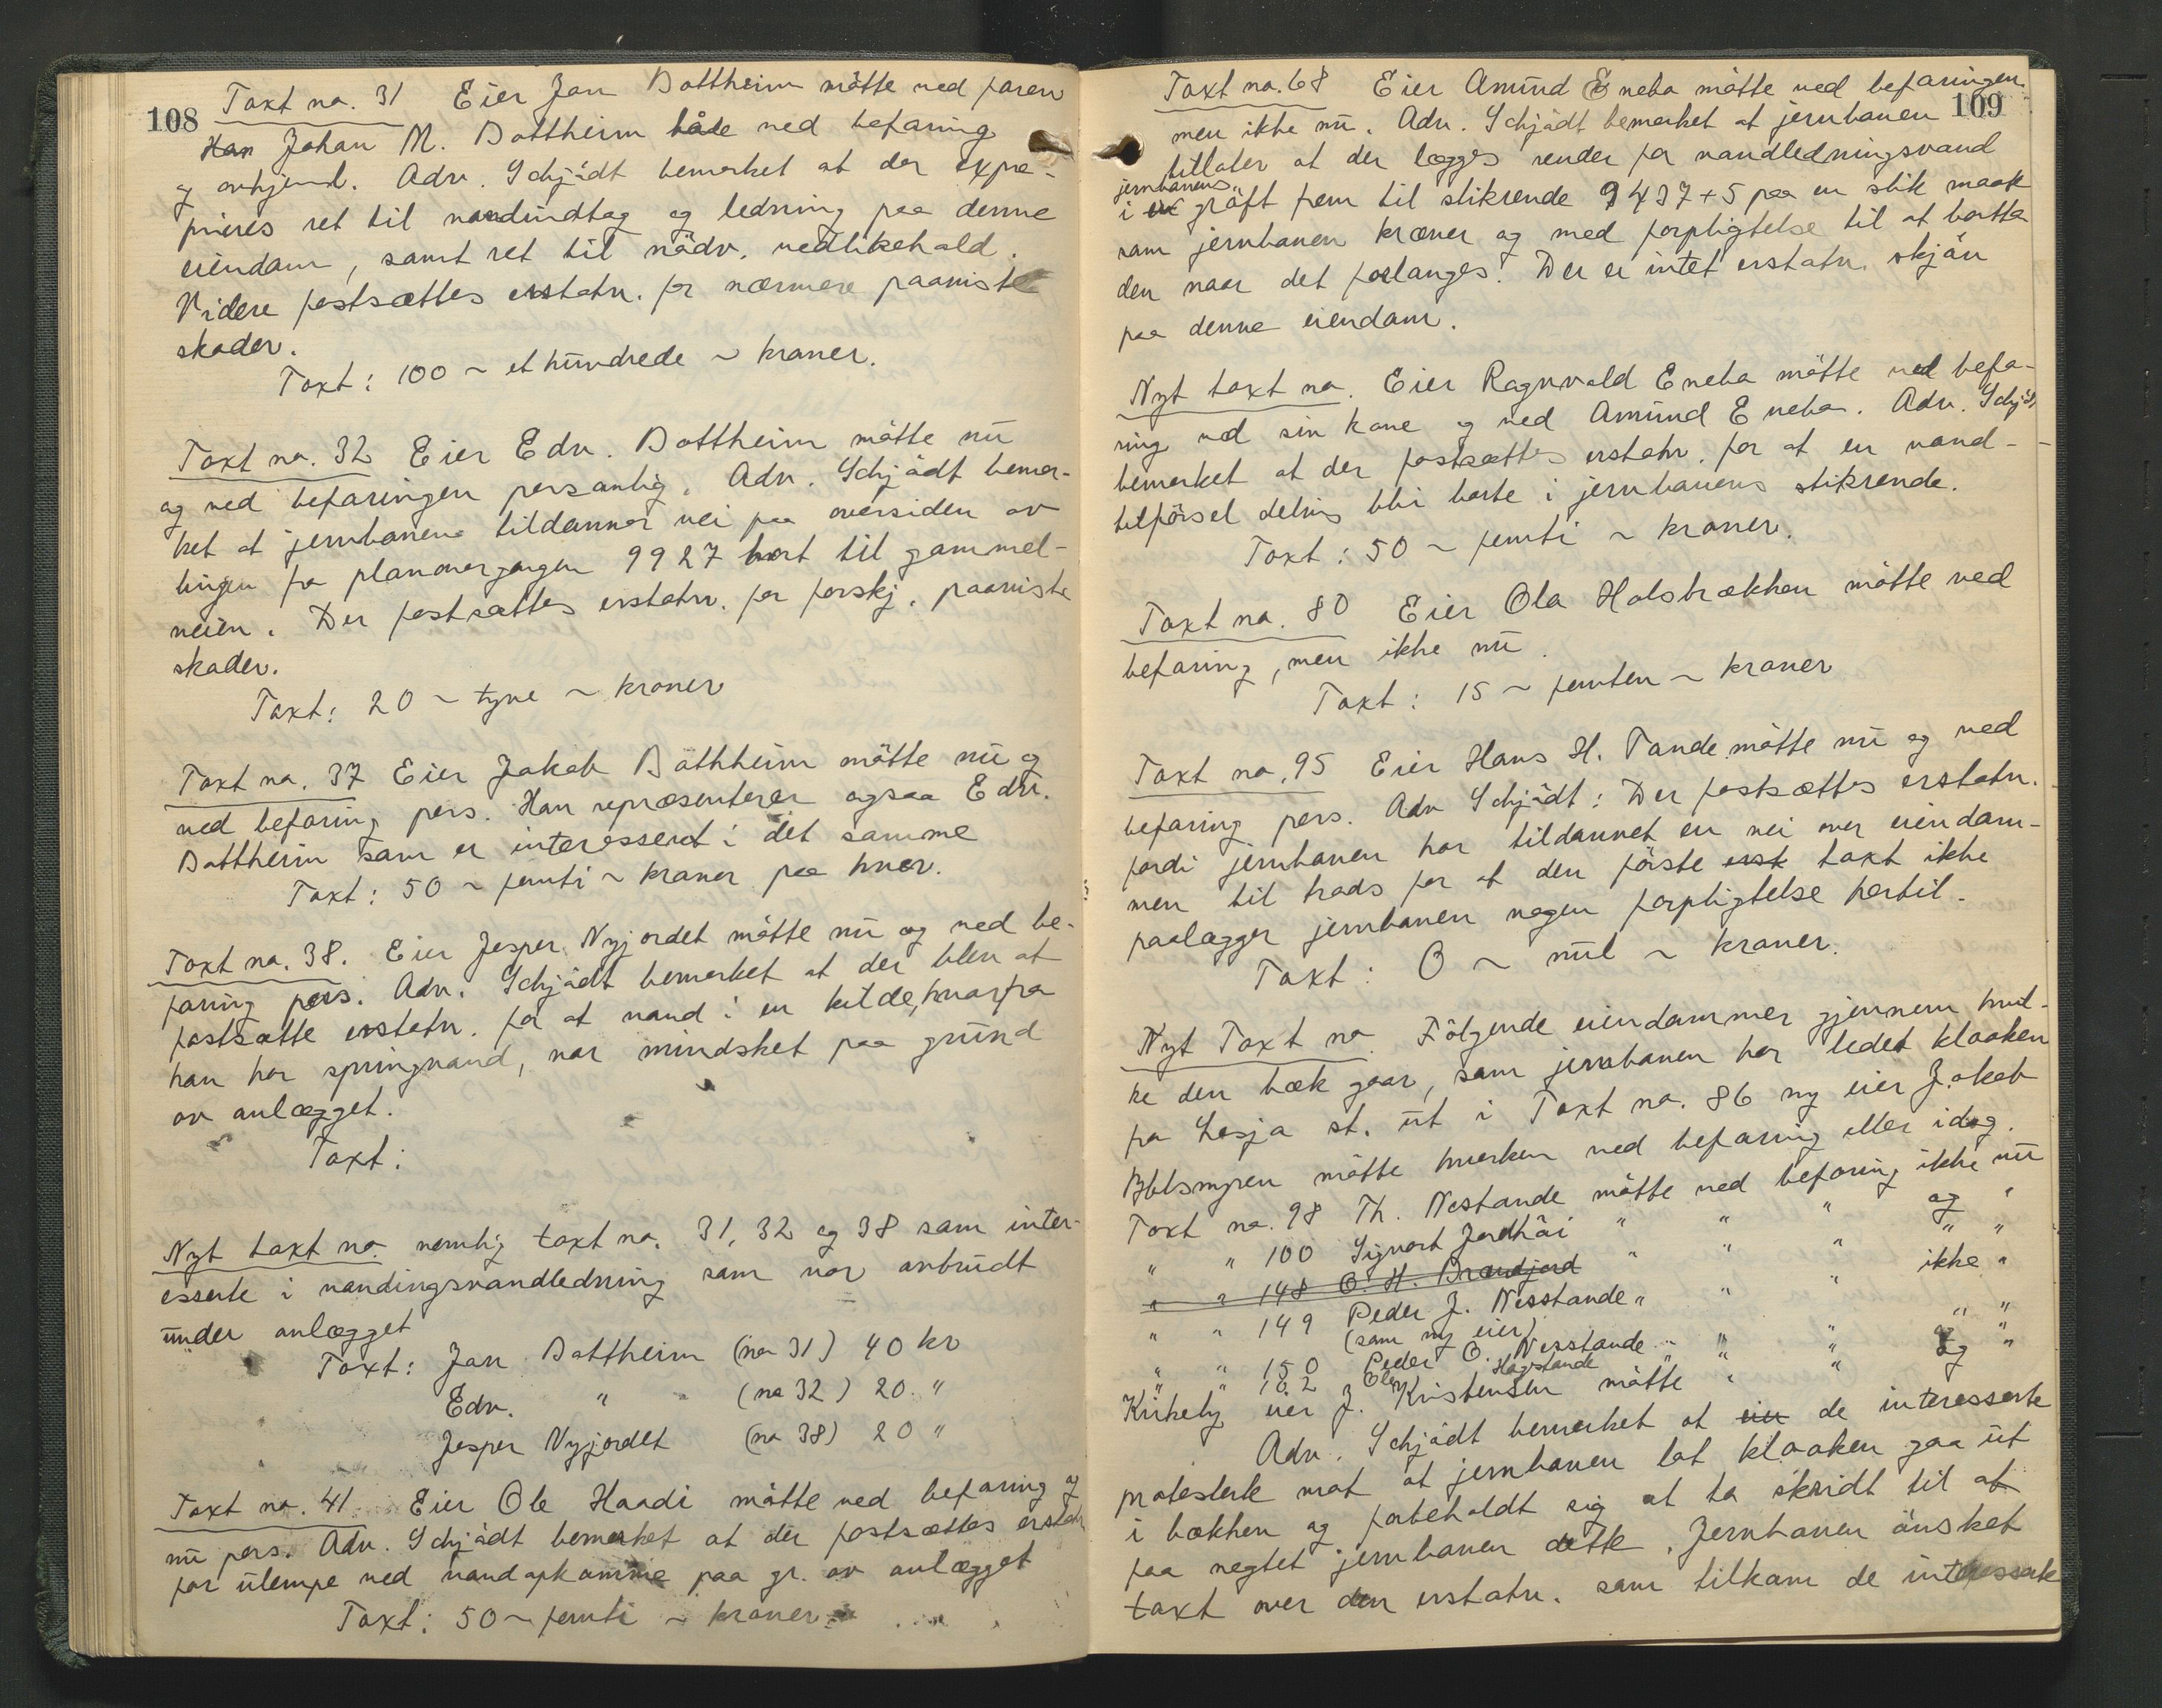 108
Taxt no. 31 Eier Jon Bottheim mötte ved faren
Han Johan M. Bottheim både ved befaring
og avhjeml. Adv. Schjødt bemerket at der expro-
prieres ret til vandindtag og ledning paa denne
eiendom, samt ret til nödv. vedlikehold.
Videre fastsættes erstatn. for nærmere paaviste
skader.
Taxt: 100 ~ et hundrede ~ kroner.
Taxt no. 32 Eier Edv. Bottheim mötte nu
og ved befaringen personlig. Adv. Schjödt bemer-
ket at jernbanen tildanner vei paa oversiden av
linjen fra planovergangen 9927 bort til gammel-
veien. Der fastsættes erstatn. for forskj. paaviste
skader.
Taxt: 20 ~ tyve ~ kroner
Taxt no. 37 Eier Jakob Bothheim mötte nu og
ved befaring pers. Han repræsenterer ogsaa Edv.
Bottheim som er interessert i det samme
Taxt: 50 ~ femti ~ kroner paa hver.
Taxt no. 38. Eier Jesper Nyjordet mötte nu og ved be-
faring pers. Adv. Schjödt bemerket at der blev at
fastsætte erstatn. for at vand i en kilde, hvorfra
han har springvand, var mindsket paa grund
av anlægget.
Taxt:
Nyt taxt no. nemlig taxt no. 31, 32 og 38 som inter-
esserte i vandingsvandledning som var avbrudt
under anlægget
Taxt: Jon Bottheim (no 31) 40 kr
Edv. " (no 32) 20 "
Jesper Nyjordet (no 38) 20 "
Taxt no. 41. Eier Ole Haadi mötte ved befaring og
nu pers. Adv. Schjödt bemerket at der fastsættes erstatn
for ulempe ved vandopkomme paa gr. av anlægget
Taxt: 50 ~ femti ~ kroner
109
Taxt no. 68 Eier Amund Enebo mötte ved befaringen
men ikke nu. Adv. Schjödt bemerket at jernbanen
tillater at der lægges render for vandledningsvand
jernbanens
i gröft frem til stikrende 9437+5 paa en slik maate
som jernbanen kræver og med forpligtelse til at bortta
den naar det forlanges. Der er intet erstatn. skjön
paa denne eiendom.
Nyt taxt no. Eier Ragnvald Enebo mötte ved befa-
ring ved sin kone og ved Amund Enebo. Adv. Schjödt
bemerket at der fastsættes erstatn. for at en vand-
tilförsel delvis blir borte i jernbanens stikrende.
Taxt: 50 ~ femti ~ kroner.
Taxt no. 80 Eier Ola Holsbrækken mötte ved
befaring, men ikke nu.
Taxt: 15 ~ femten ~ kroner
Taxt no. 95 Eier Hans H. Tande mötte nu og ved
befaring pers. Adv Schjödt: Der fastsættes erstatn.
fordi jernbanen har tildannet en vei over eiendom-
men til trods for at den förste erst taxt ikke
paalægger jernbanen nogen forpligtelse hertil.
Taxt: 0 ~ nul ~ kroner.
Nyt Taxt no. Fölgende eiendommer gjennem hvil-
ke den bæk gaar, som jernbanen har ledet kloaken
fra Lesja st. ut i Taxt no. 86 ny eier Jakob
mötte hverken ved befaring eller idag.
Taxt no. 98 Th. Nestande mötte ved befaring ikke nu
" " 100 Sigvart Jordhöi " " " og "
" " 148 O. H. Brændjord " " " " "
" " 149 Peder J. Nesstande " " " ikke "
(som ny eier)
" " 150 Peder O. Nesstande " " " " "
" " 162 Ole Hagstande " " " og "
Kirkeby eier J. Kristensen mötte " "
Adv. Schjödt bemerket at eier de interesserte
protesterte mot at jernbanen lot kloaken gaa ut
i bækken og forbeholdt sig at ta skridt til at
faa negtet jernbanen dette. Jernbanen önsket
taxt over den erstatn. som tilkom de interesserte